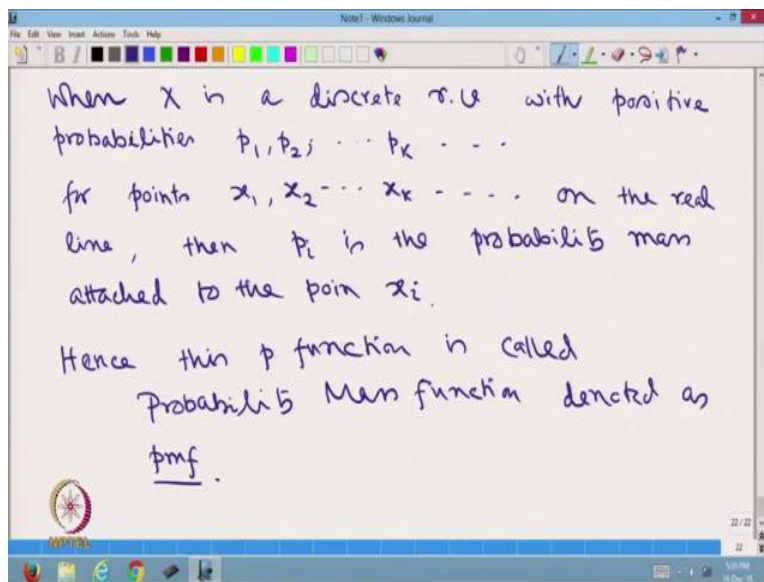 Note1 - Windows Journal
File Edit View Insert Actions Tools Help
When X is a discrete r.v with positive
probabilities p₁, p₂, ··· pₖ - - -
for points x₁, x₂ --- xₖ - - - - on the real
line, then pᵢ is the probability mass
attached to the poin xᵢ.
Hence this p function is called
Probability Mass function denoted as
pmf.
NPTEL
22 / 22
22
5:59 PM